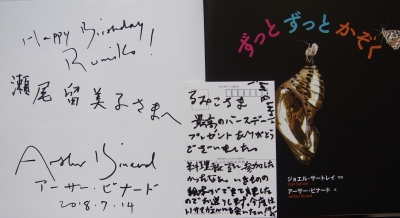 Happy Birthday
Rumiko!
瀬尾 留美子さまへ
Arthur Binard
アーサー・ビナード
2018.7.14
るみこさま
最高のバースデー
プレゼントありがとう
ございました。
料理教室に参加し
いきもの
絵本ができましたので
お送りします。
ずっと ずっと かぞく
ジョエル・サートレイ
アーサー・ビナード